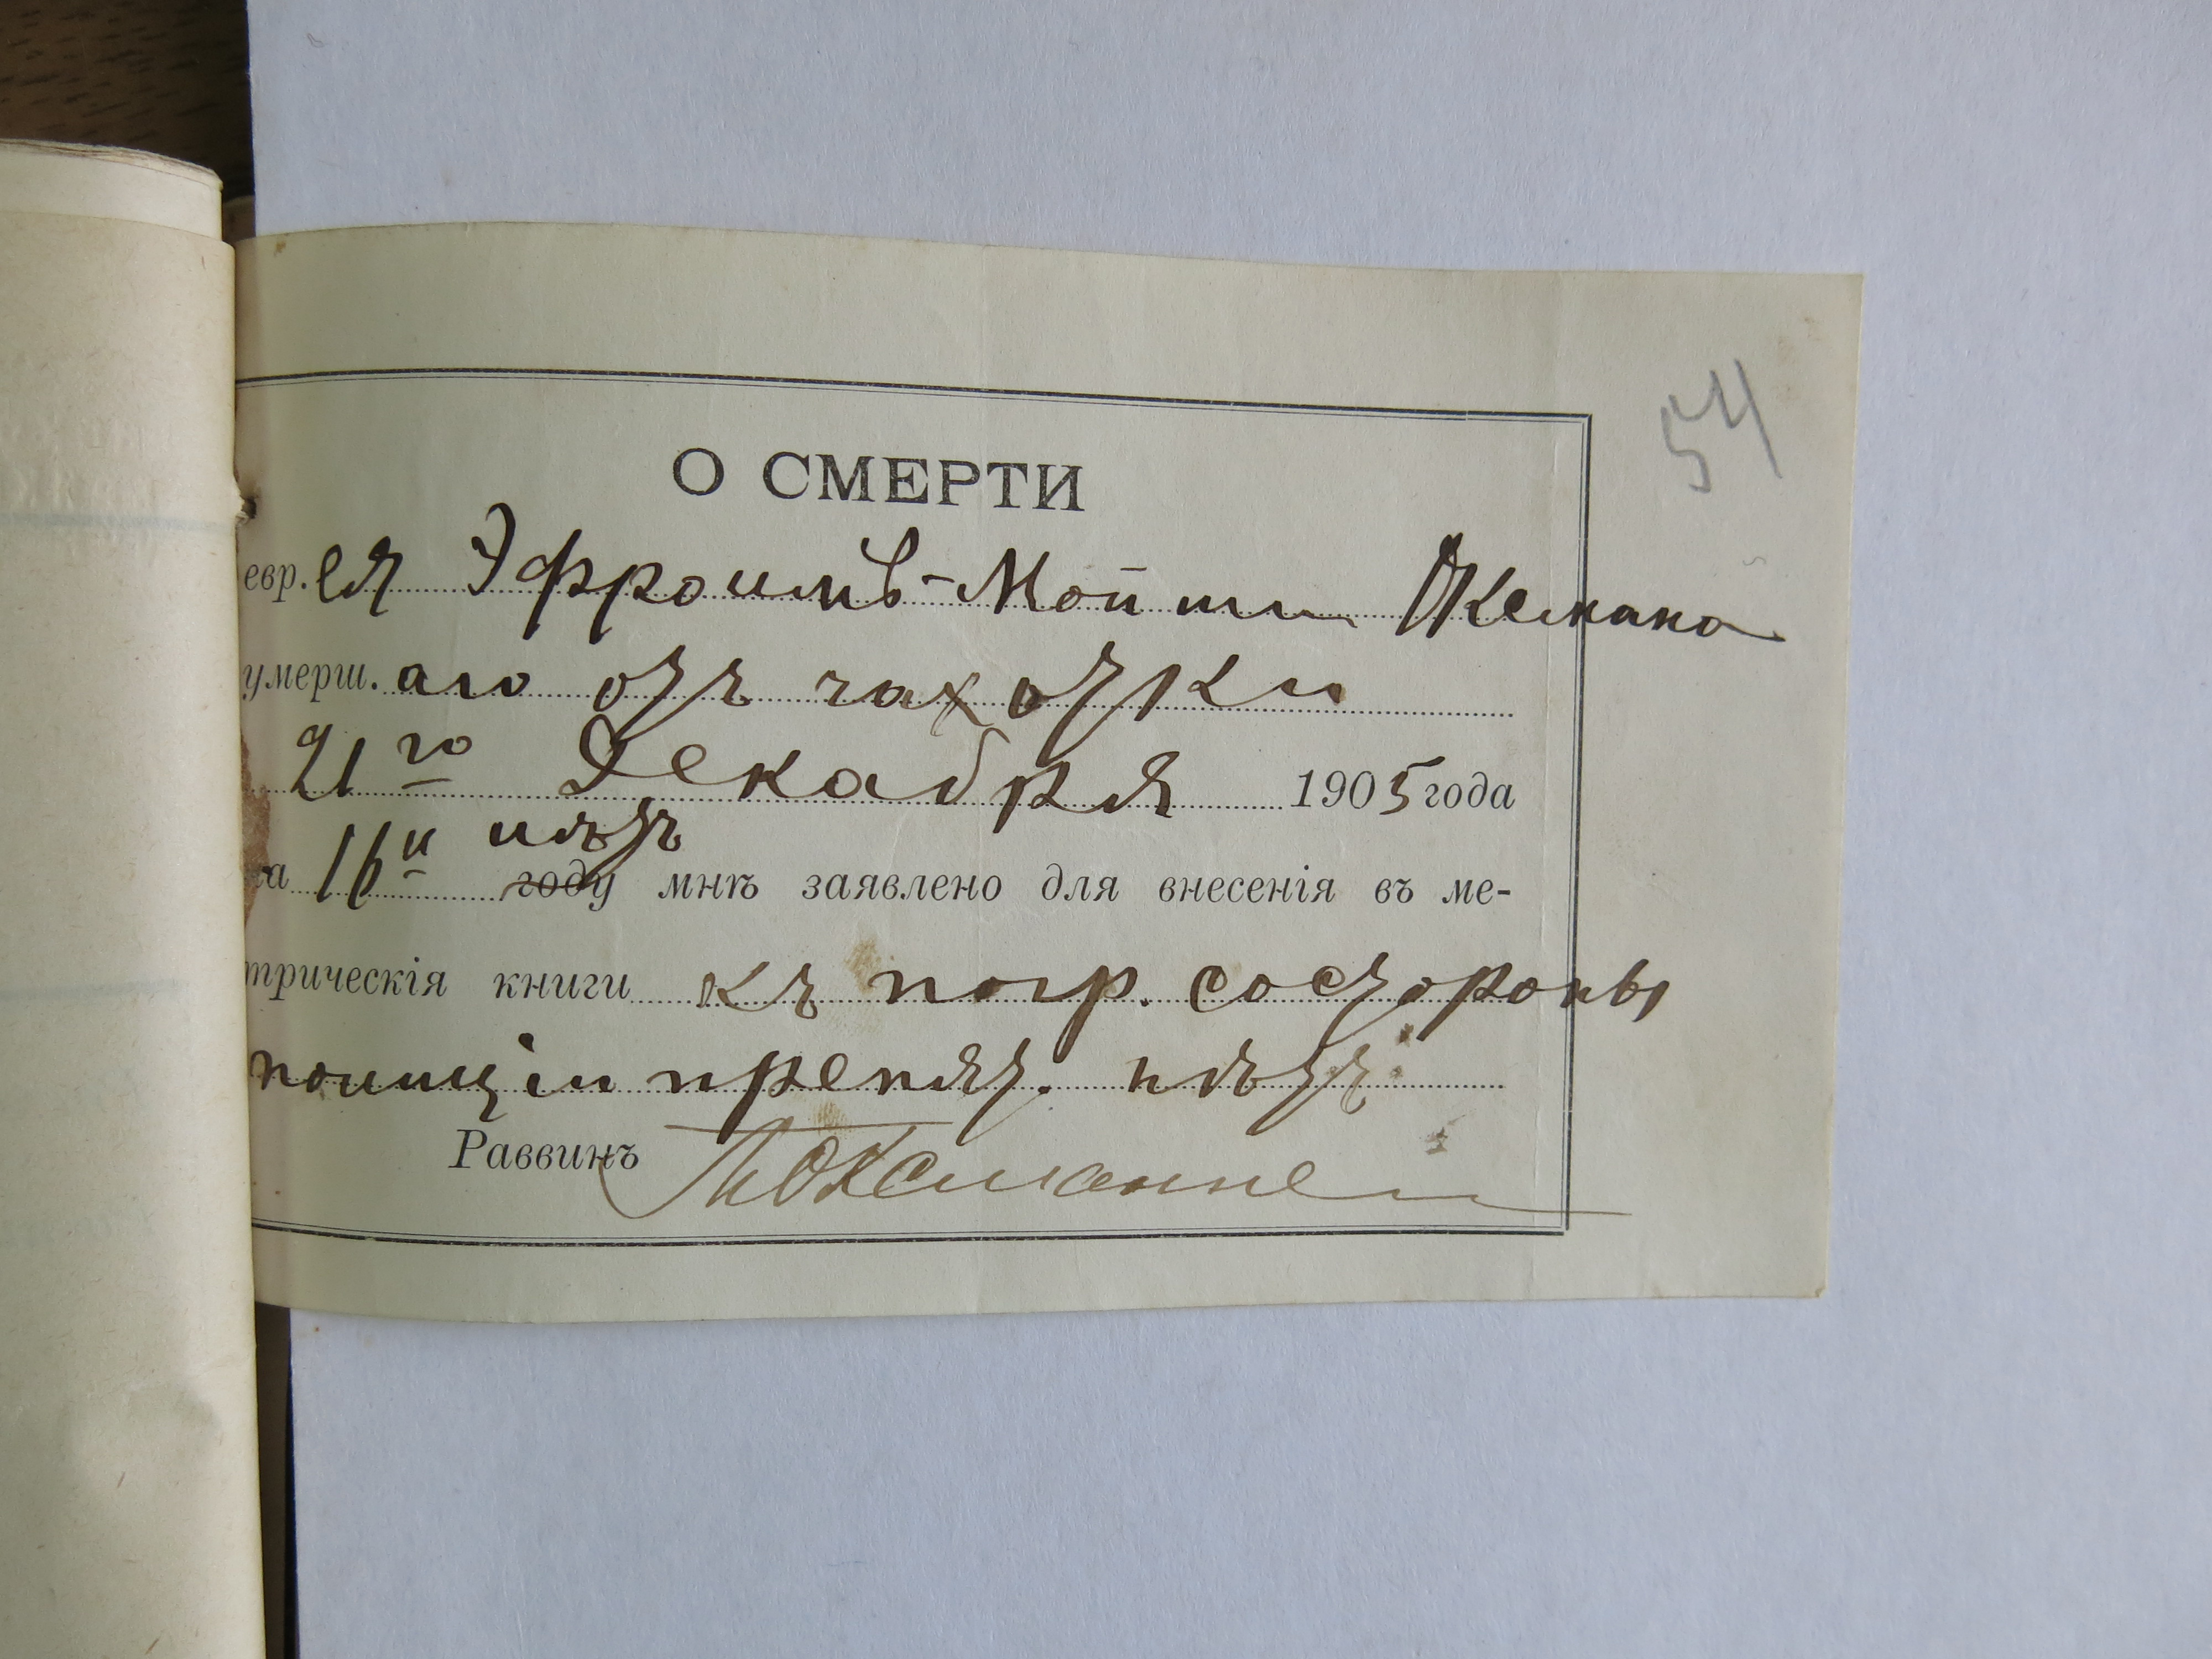 54
О СМЕРТИ
евр.ея Эфроимъ-Мойши Окемана
умерш.аго отъ чахотки
21го Декабря 1905 года
на 16и лѣтъ году мнѣ заявлено для внесенія въ ме-
трическія книги къ погр. состороны
полиціи препят. нѣтъ
Раввинъ